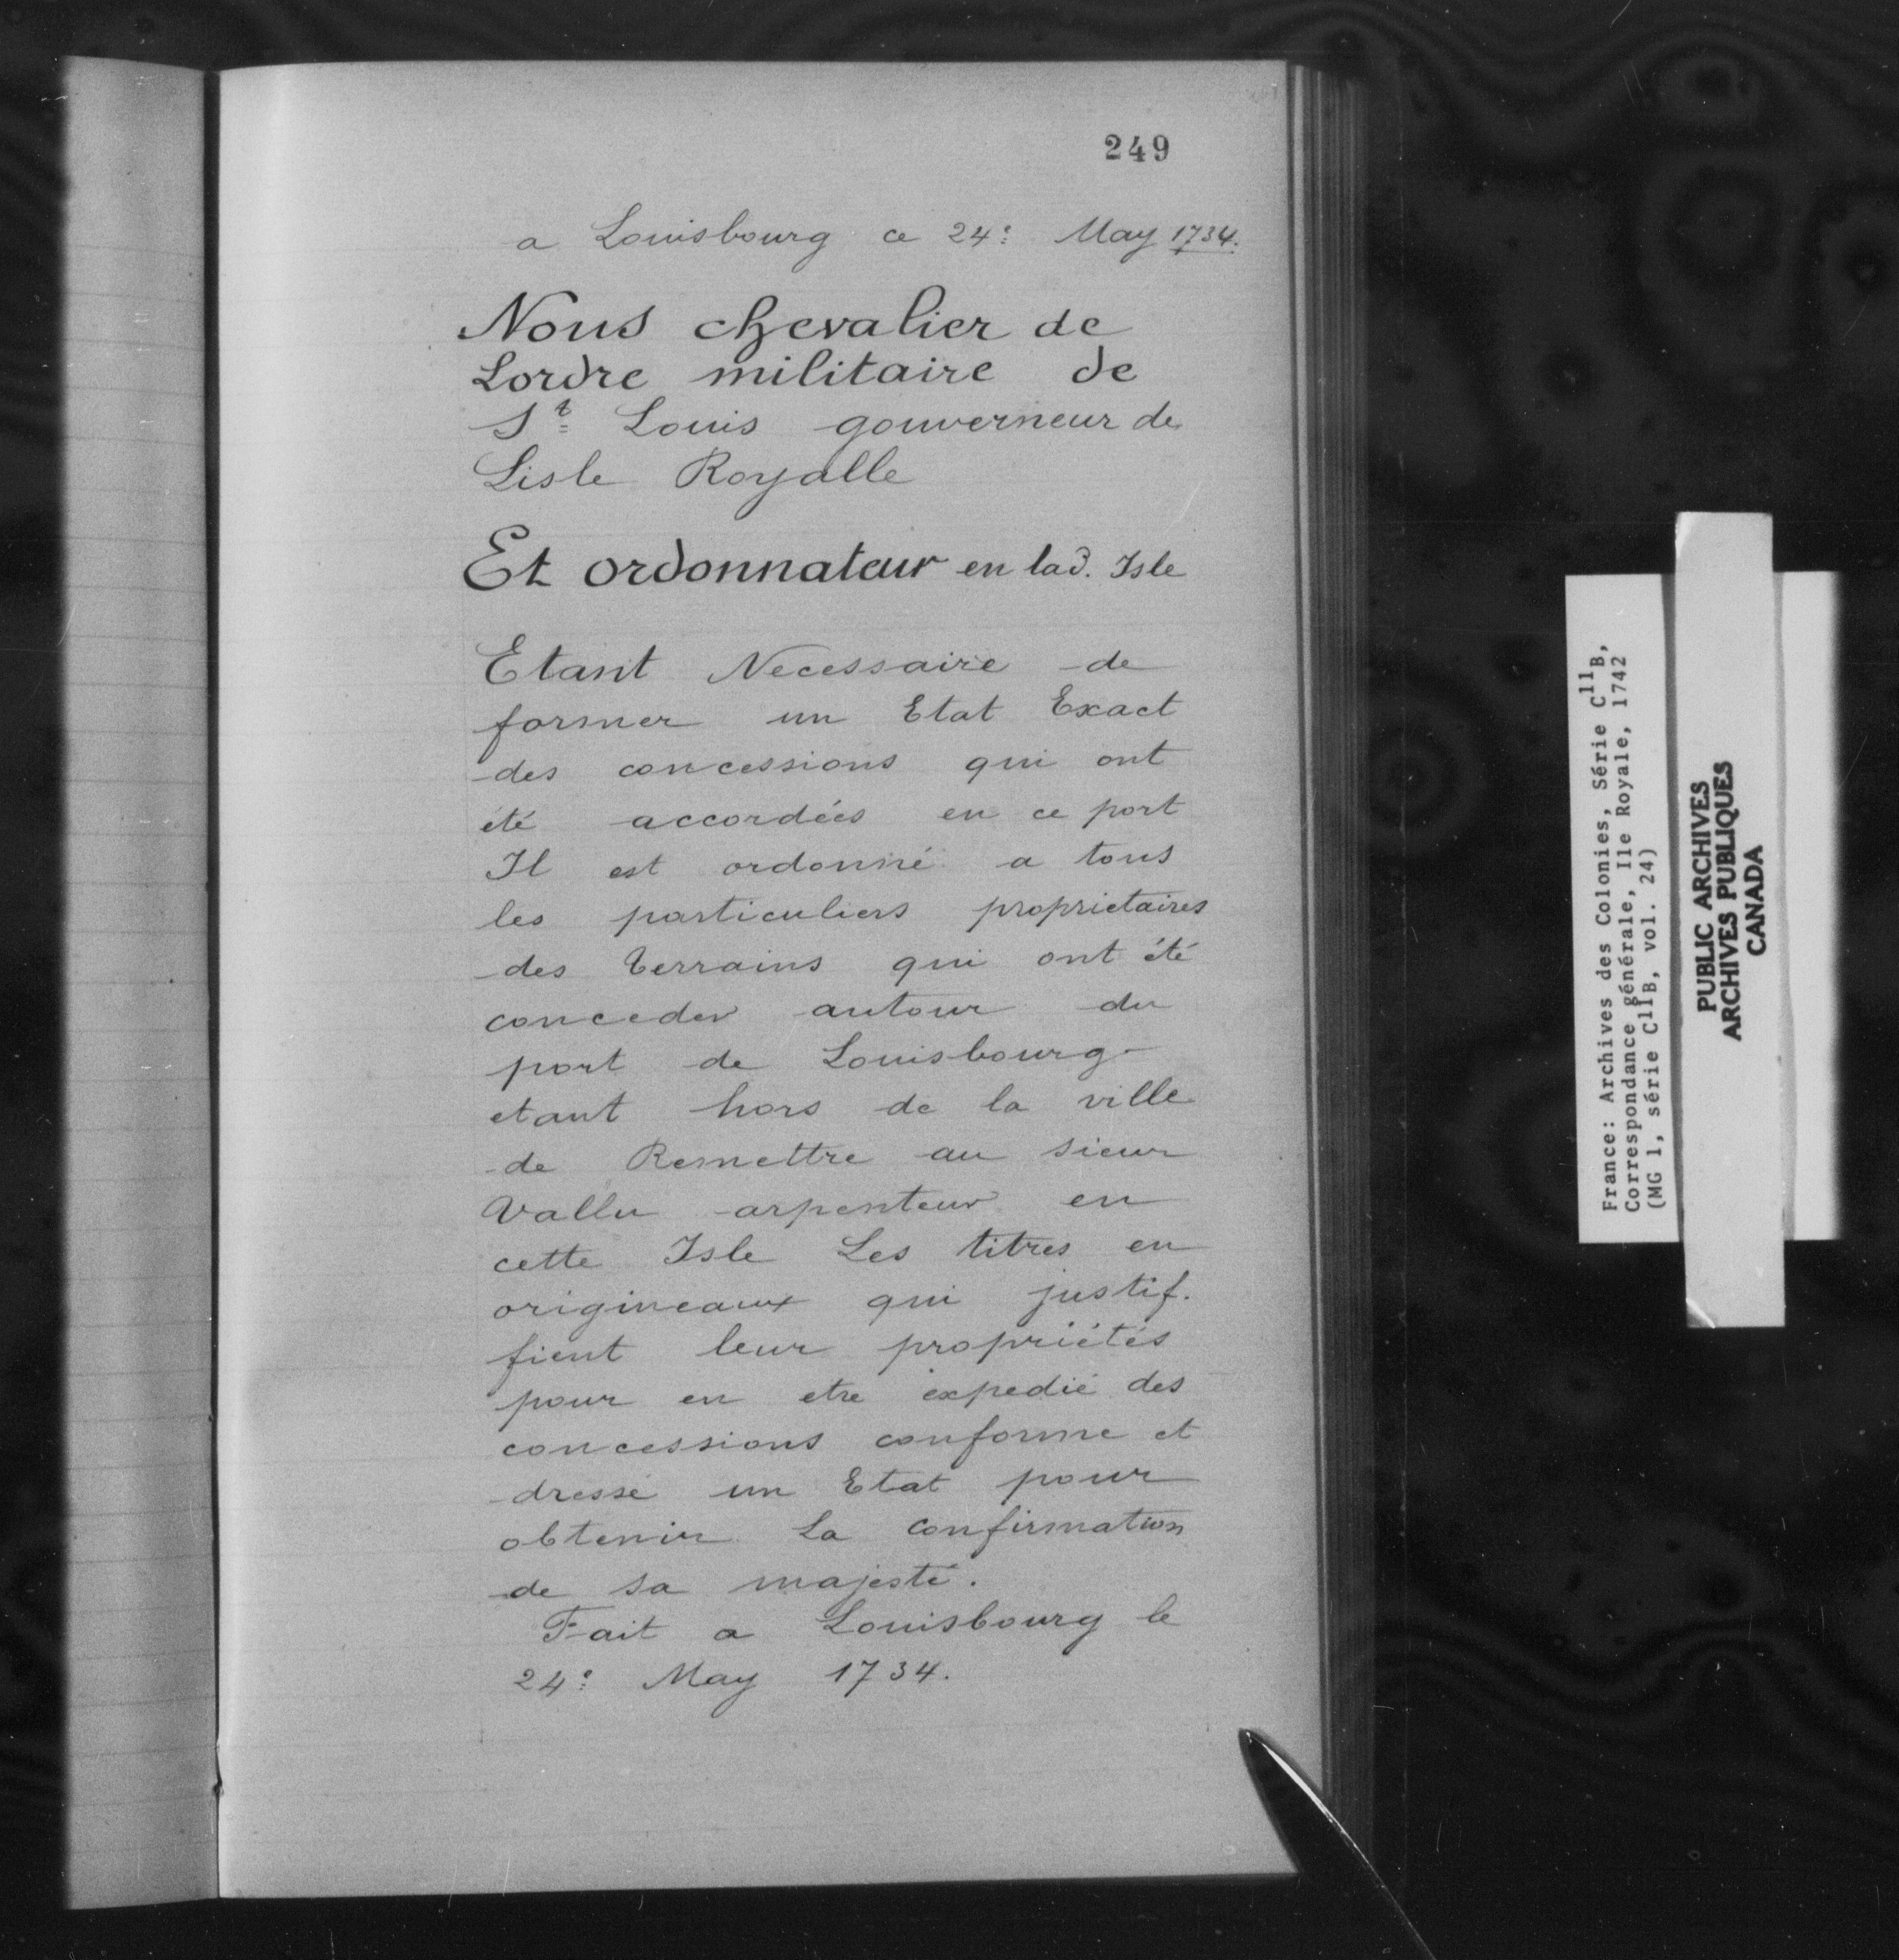 249
a Louisbourg ce 24e May 1734.
Nous chevalier de
Lordre militaire de
St Louis gouverneur de
Lisle Royalle
Et ordonnateur en lad. Isle
Etant Necessaire de
former un Etat Exact
des concessions qui ont
été accordées en ce port
Il est ordonné a tous
les particuliers proprietaires
des terrains qui ont été
conceder autour du
port de Louisbourg
etant hors de la ville
de Remettre au sieur
Vallu arpenteur en
cette Isle Les titres en
origineaux qui justif.
fient leur propriétés
pour en etre expedié des
concessions conforme et
dressé un Etat pour
obtenir La confirmation
de sa majesté.
Fait a Louisbourg le
24e May 1734.
France: Archives des Colonies, Série C11B,
Correspondance générale, Ile Royale, 1742
(MG 1, série C11B, vol. 24)
PUBLIC ARCHIVES
ARCHIVES PUBLIQUES
CANADA